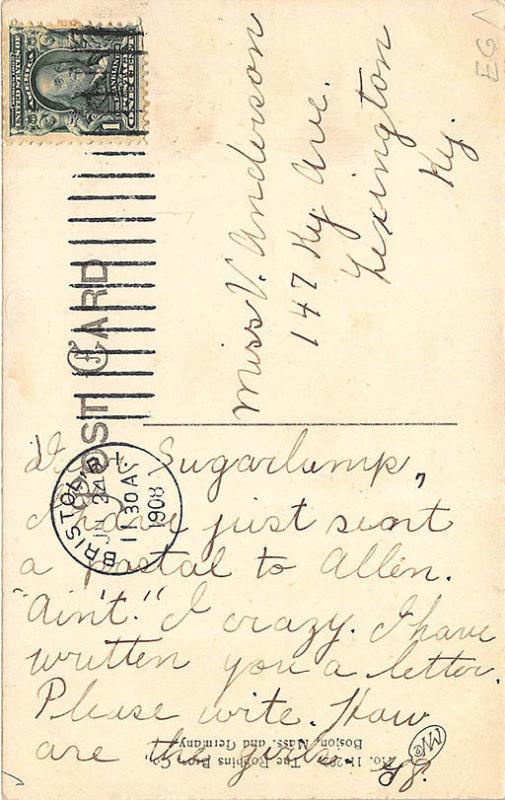 UNITED STATES OF AMERICA
POSTAGE
POST CARD
BRISTOL
11 30 A
1908
Miss V. Anderson
147 Ky Ave.
Lexington
Ky.
Dear Sugarlump,
I have just sent
a postal to Allen.
"Aint" I crazy. I have
written you a letter.
Please wite. How
are the girls
The Robbins Bros. Co.
Boston, Mass. and Germany.